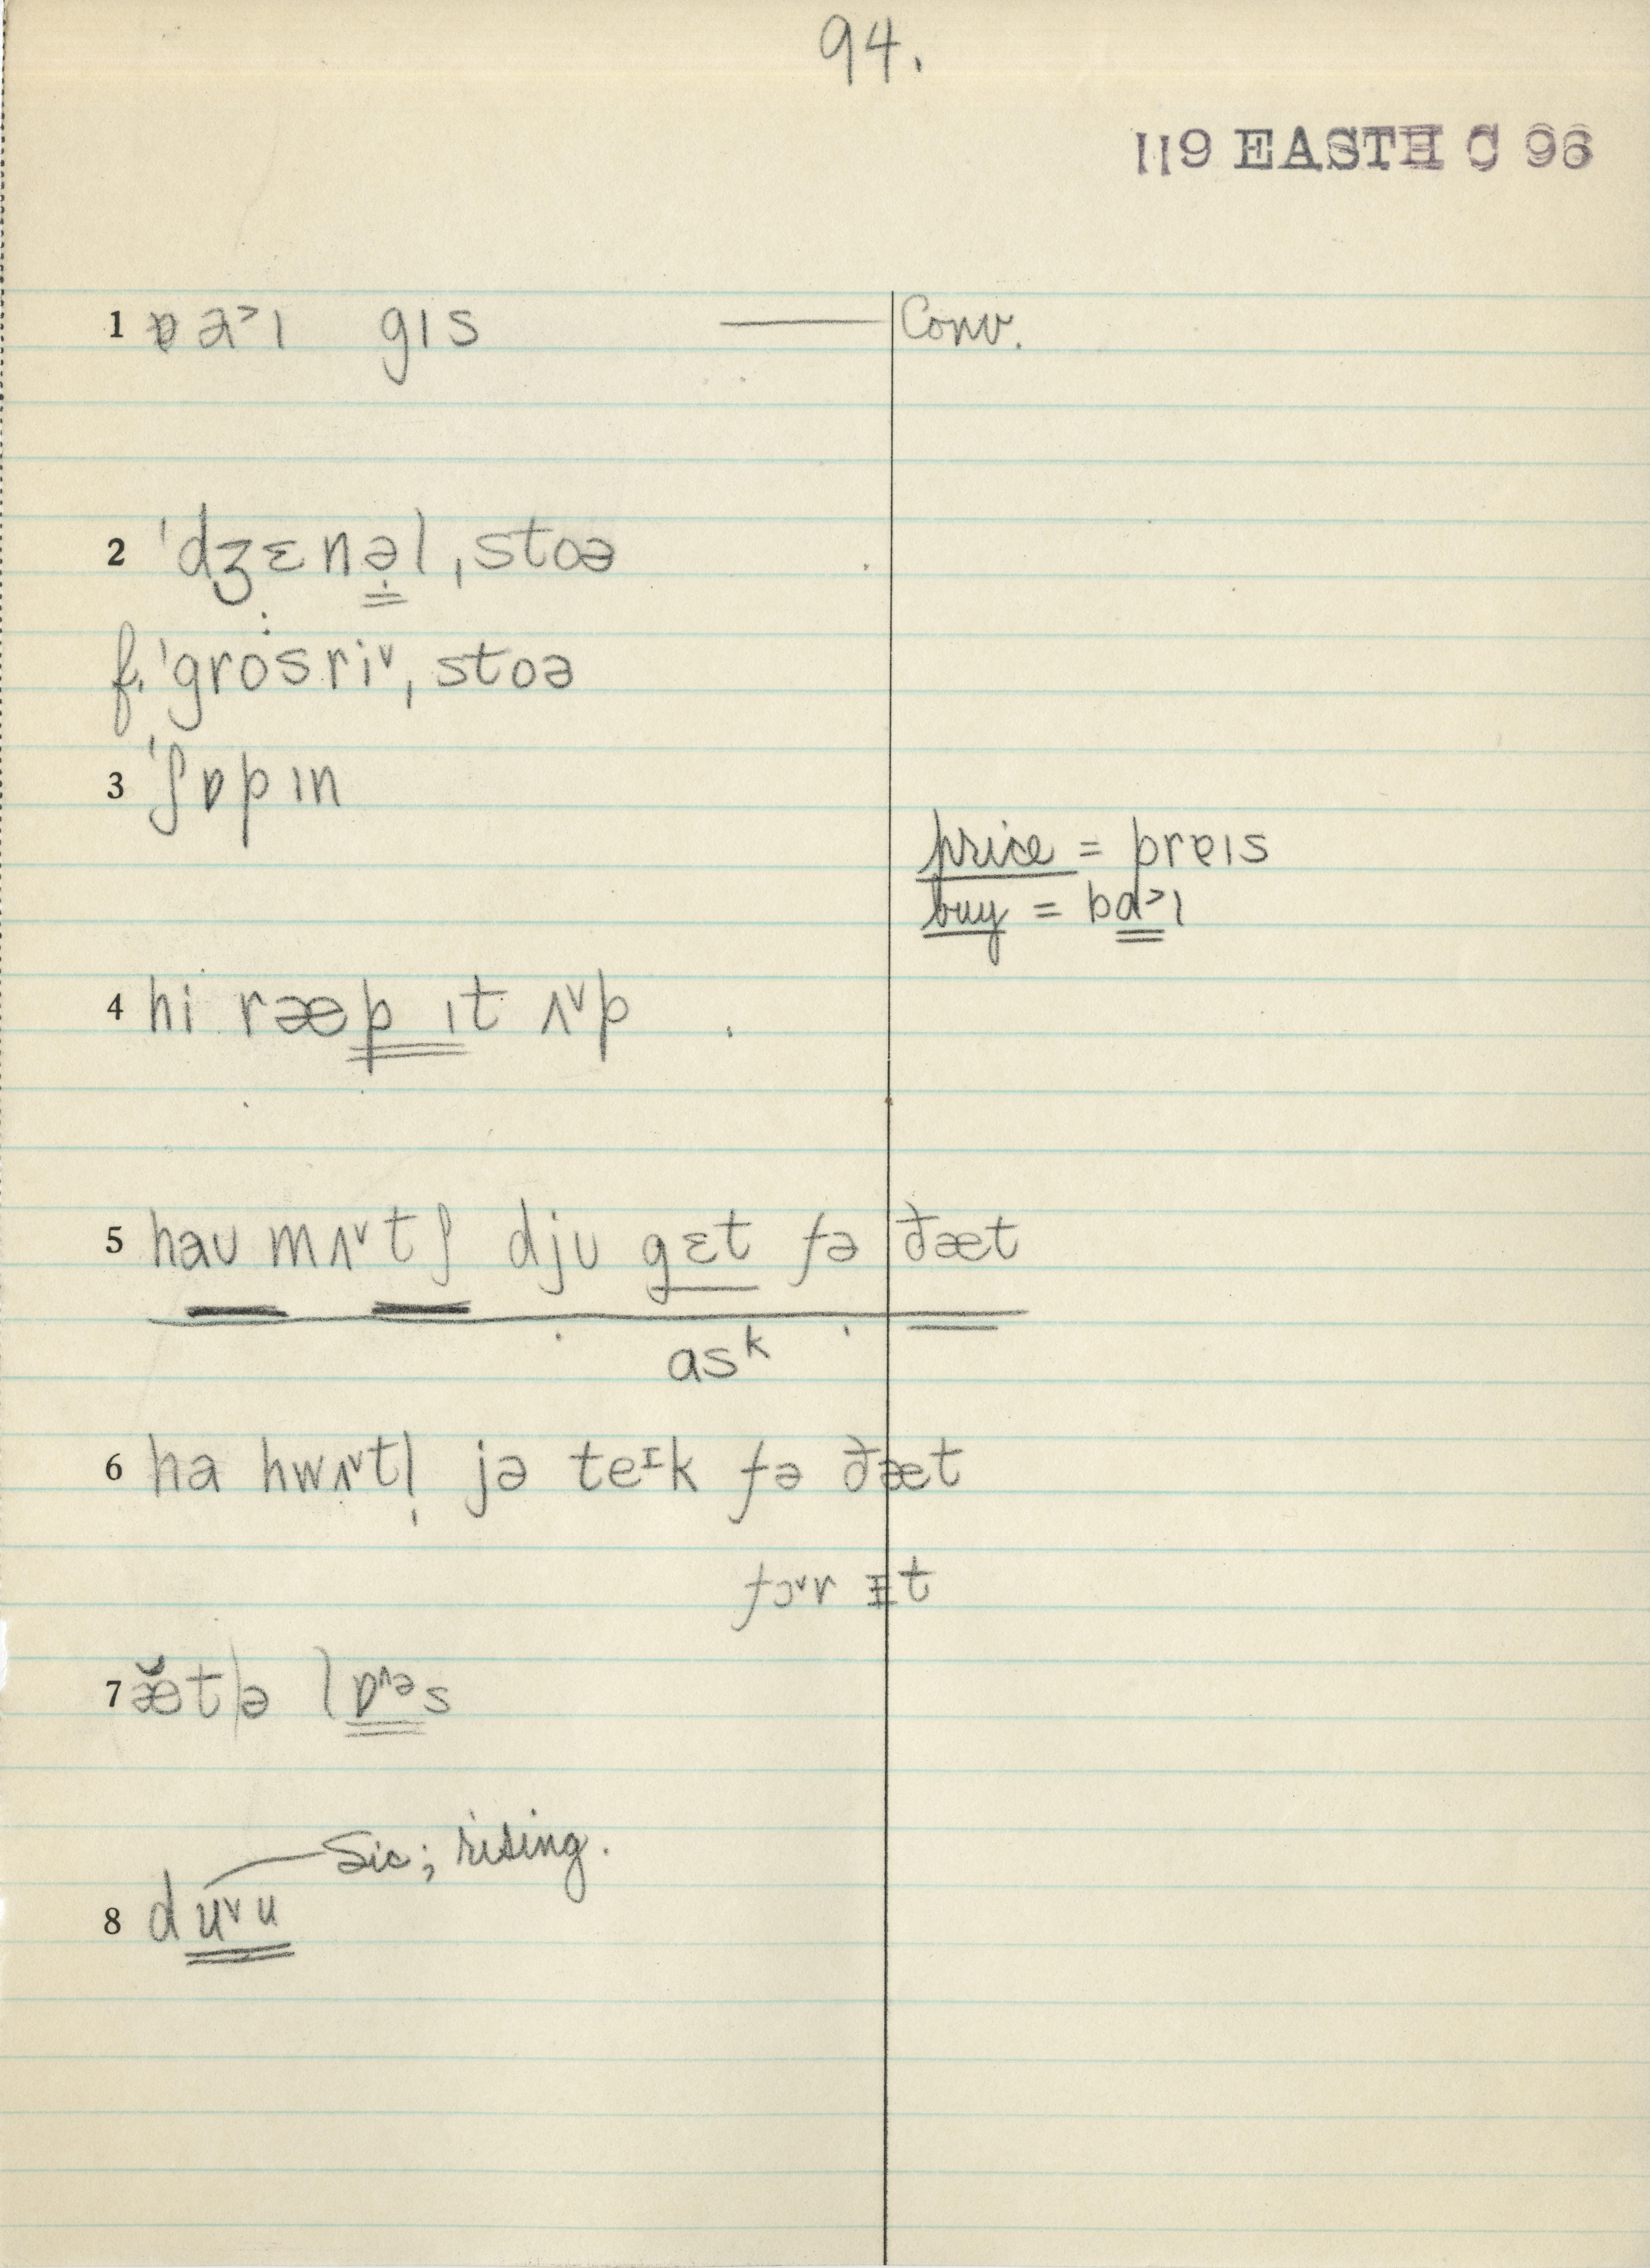 94.
119 EASTH C 96
1 a˃ɪ gɪs — Conv.
2 ˈdʒɛnəl ˌstoə
f. ˈgrosriᵛ ˌstoə
3 ˈʃɒpɪn
price = prɐɪs
buy = bɑ˃ɪ
4 hi ræp ɪt ʌᵛp
5 haʊ mʌᵛtʃ djʊ gɛt fə ðæt
ask
6 ha hwʌᵛtl̩ jə teᴵk fə ðæt
fɔᵛr ɪt
7 æ̆t|ə lɒ^ᵊs
Sic; rising.
8 duᵛu